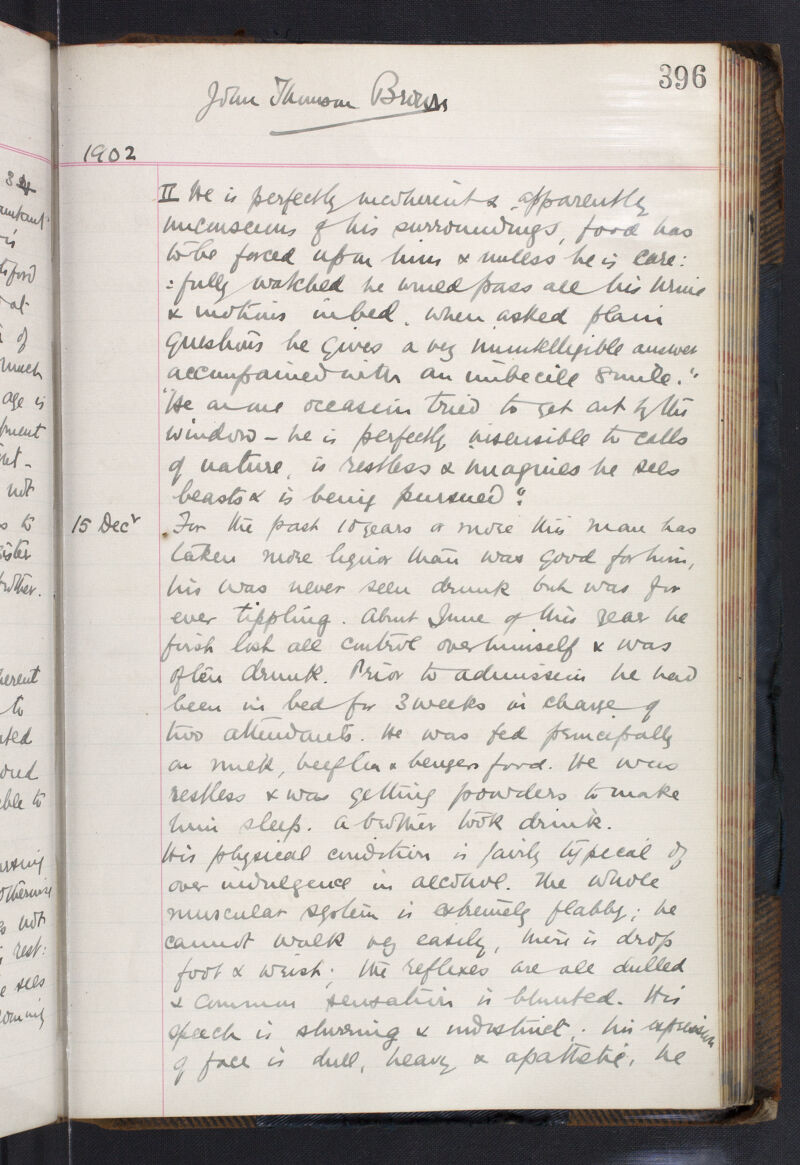 396
John Thomson Brown
1902
II He is perfectly incoherent & apparently
unconscious of his surroundings, food has
to be forced upon him & unless he is care:
:fully watched he would pass all his urine
& motions in bed. When asked plain
questions he gives a very unintelligible answer
accompanied with an imbecile smile."
"He on one occasion tried to get out by the
window - he is perfectly insensible to calls
of nature, is restless & imagines he sees
beasts & is being pursued".
15 Decr For the past 10 years or more this man has
taken more liquor than was good for him,
his was never seen drunk but was for
ever tippling. About June of this year he
first lost all control over himself & was
often drunk. Prior to admission he had
been in bed for 3 weeks in charge of
two attendants. He was fed principally
on milk, beef tea & bengers food. He was
restless & was getting powders to make
him sleep. A brother took drink.
His physical condition is fairly typical of
over indulgence in alcohol. The whole
muscular system is extremely flabby; he
cannot walk very easily, there is drop
foot & wrist; the reflexes are all dulled
& common sensation is blunted. His
speech is slurring & indistinct; his expression
of face is dull, heavy & apathetic, he